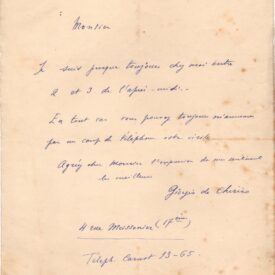 Monsieur
Je suis presque toujours chez moi entre
2 et 3 de l'après-midi.
En tout cas vous pouvez toujours m'annoncer
par un coup de téléphone votre visite
Agréez cher Monsieur l'expression de mes sentiments
les meilleurs
Giorgio de Chirico
4 rue Meissonier (17ème)
Téleph. Carnot 13-65.